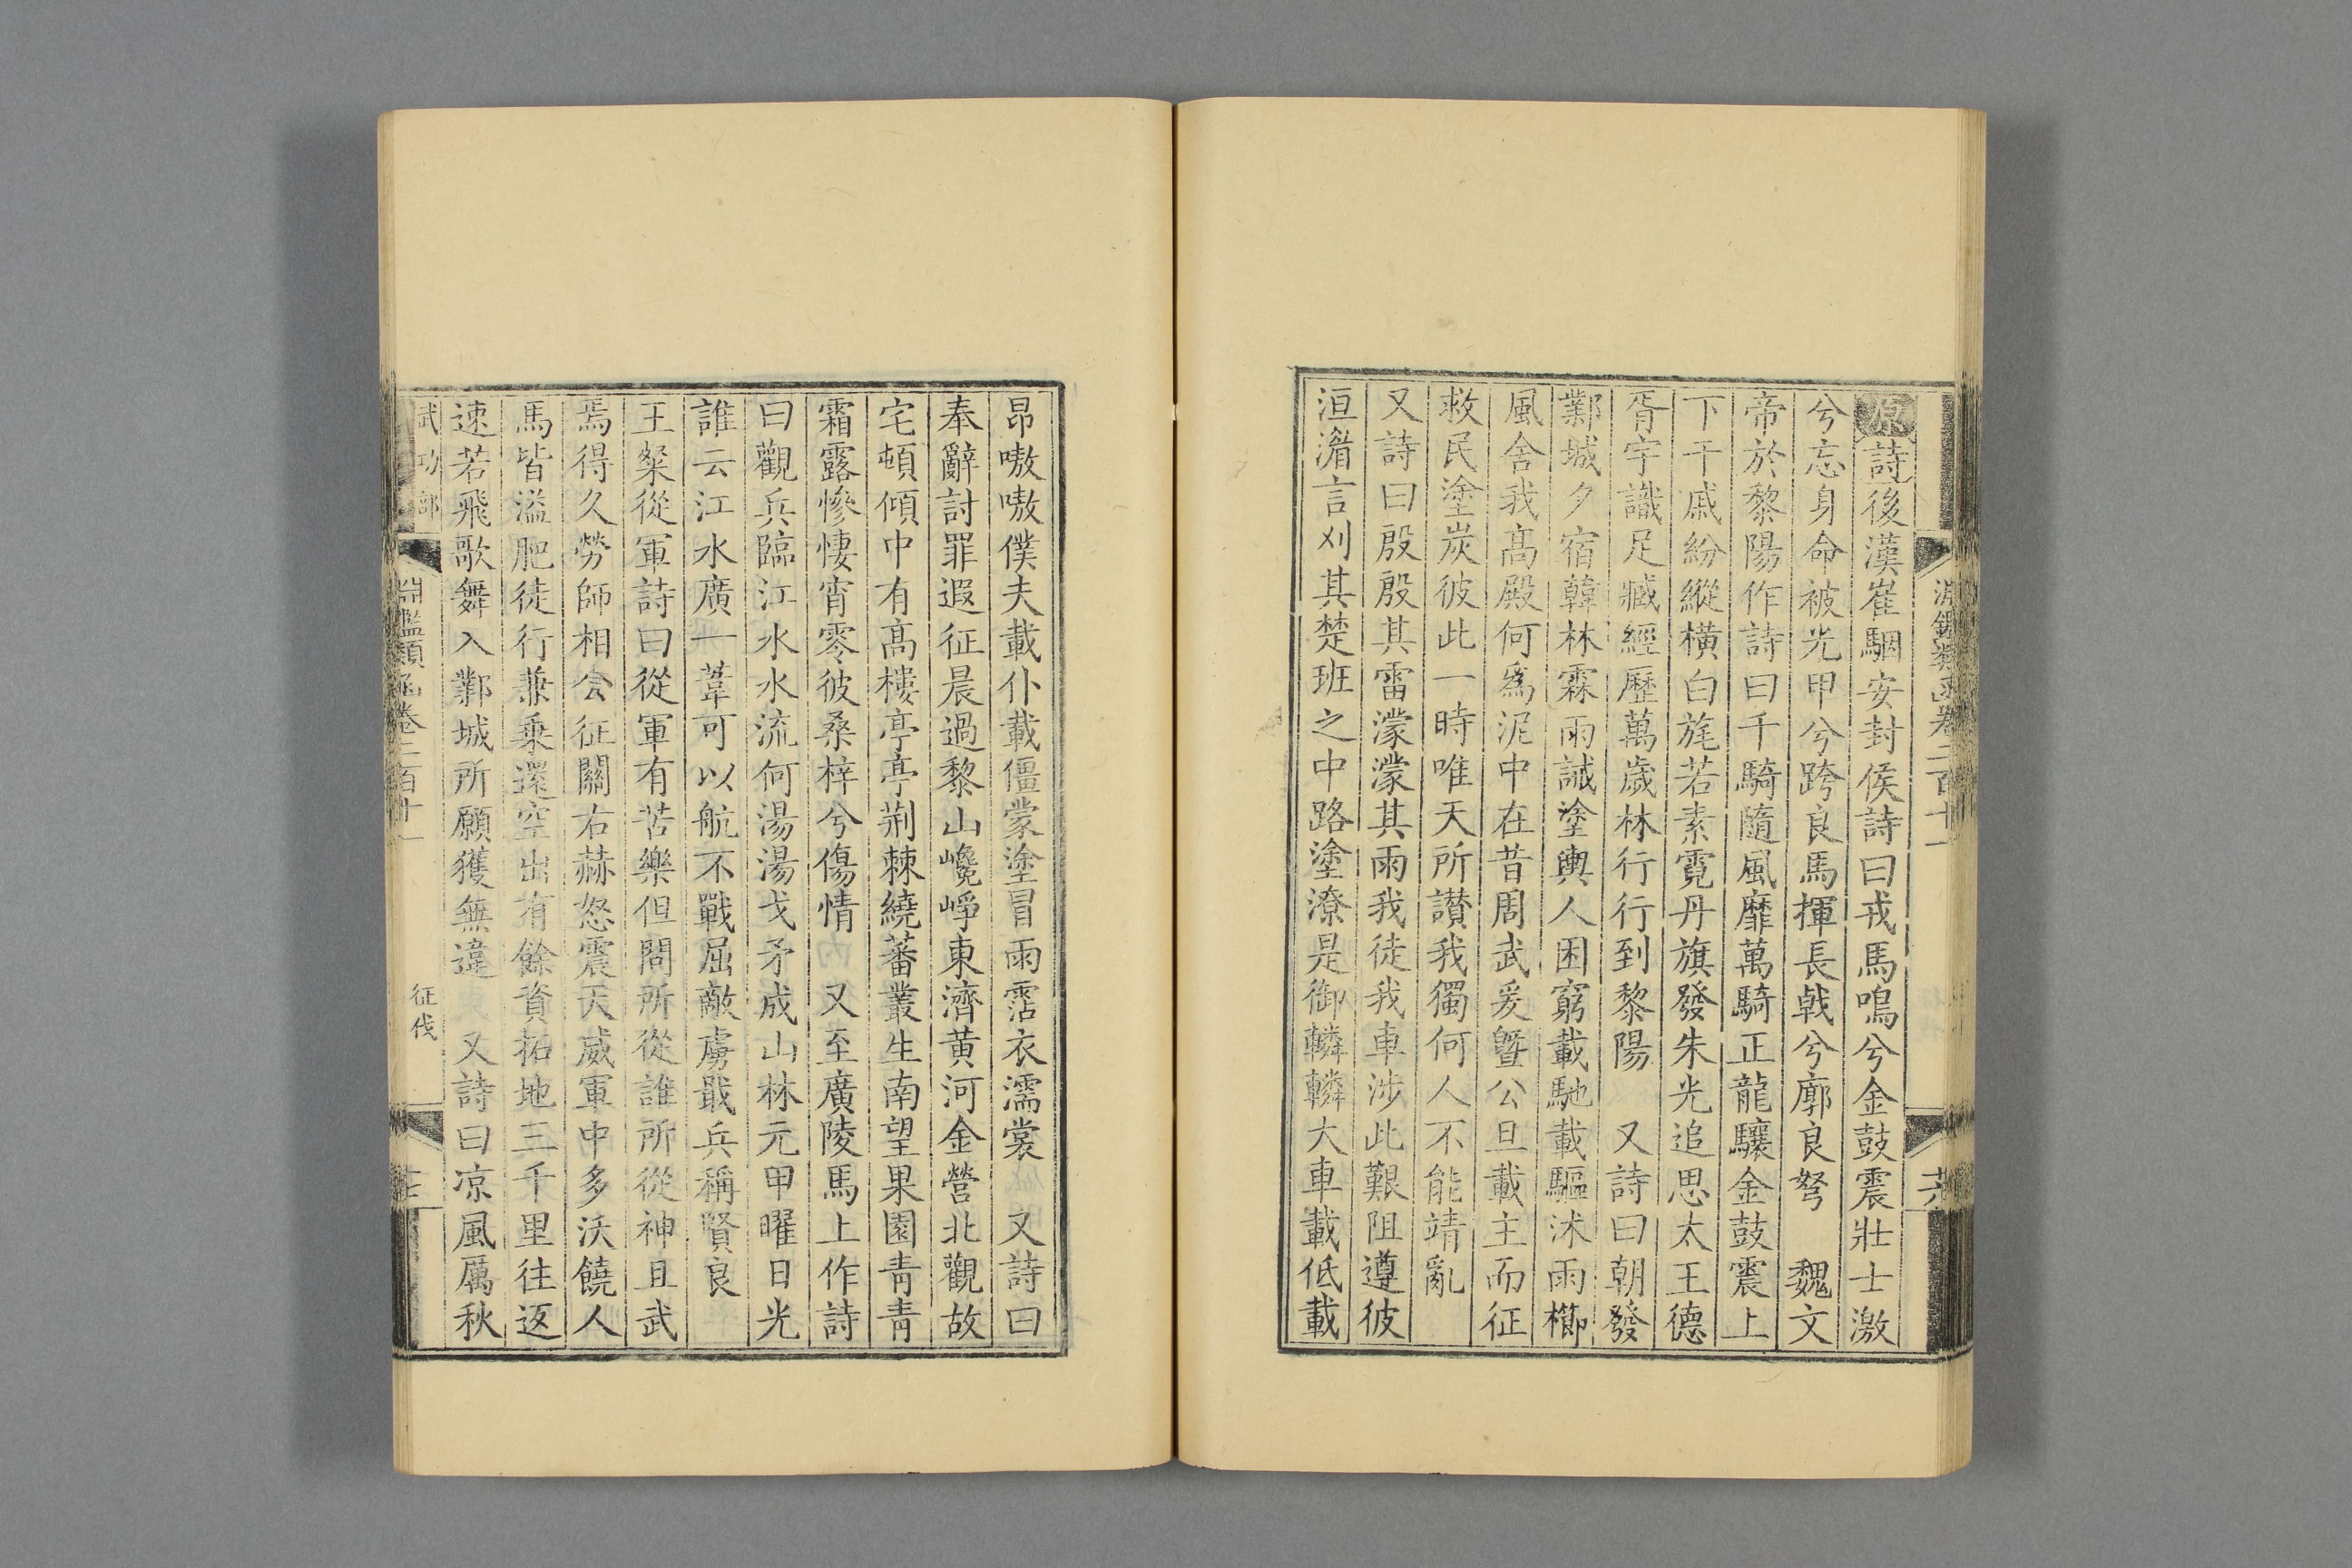 淵鑑類函卷二百十一
原詩後漢崔駰安封侯詩曰戎馬鳴兮金鼓震壯士激
兮忘身命被光甲兮跨良馬揮長戟兮廓良弩　魏文
帝於黎陽作詩曰千騎隨風靡萬騎正龍驤金鼓震上
下干戚紛縱橫白旄若素霓丹旗發朱光追思太王德
胥宇識足臧經歷萬歲林行行到黎陽　又詩曰朝發
鄴城夕宿韓林霖雨諴塗輿人困窮載馳載驅沭雨櫛
風舍我高殿何爲泥中在昔周武爰曁公旦載主而征
救民塗炭彼此一時唯天所讃我獨何人不能靖亂
又詩曰殷殷其雷濛濛其雨我徒我車涉此艱阻遵彼
洹湽言刈其楚班之中路塗潦是御轔轔大車載低載
昂嗷嗷僕夫載仆載僵蒙塗冒雨霑衣濡裳　又詩曰
奉辭討罪遐征晨過黎山巉崢東濟黃河金營北觀故
宅頓傾中有高樓亭亭荆棘繞蕃叢生南望果園靑靑
霜露慘悽宵零彼桑梓兮傷情　又至廣陵馬上作詩
曰觀兵臨江水水流何湯湯戈矛成山林元甲曜日光
誰云江水廣一葦可以航不戰屈敵虜戢兵稱賢良
王粲從軍詩曰從軍有苦樂但問所從誰所從神且武
焉得久勞師相公征關右赫怒震天威軍中多沃饒人
馬皆溢肥徒行兼乗還空出有餘資拓地三千里往返
速若飛歌舞入鄴城所願獲無違　又詩曰凉風厲秋
武功部
淵鑑類函卷二百十一
征伐